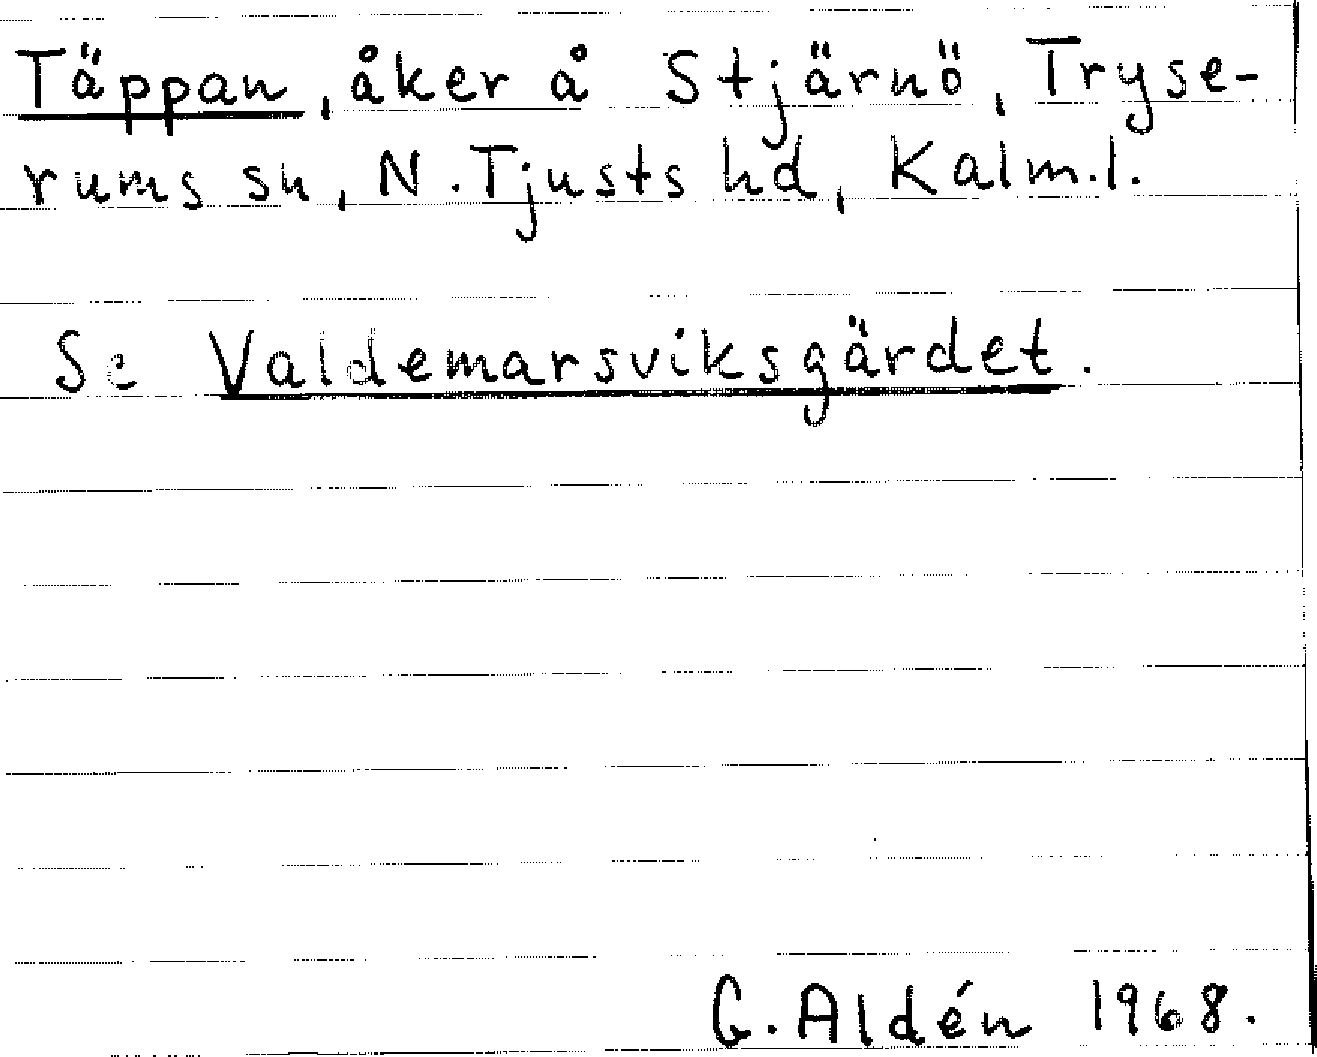 Täppan, åker å Stjärnö, Tryse-
rums sn, N. Tjusts hd, Kalm.l.
Se Valdemarsviksgärdet.
G. Aldén 1968.